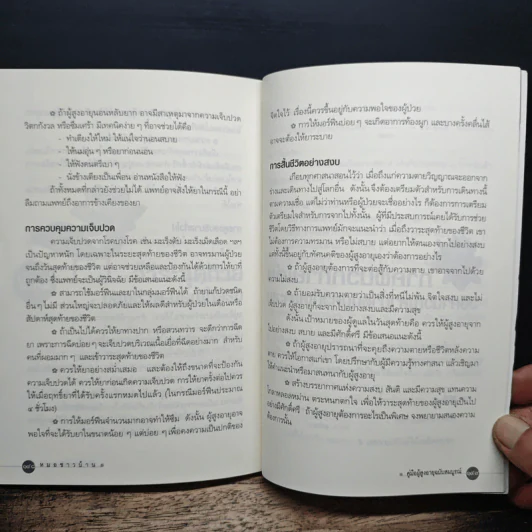 ✿ ถ้าผู้สูงอายุนอนหลับยาก อาจมีสาเหตุมาจากความเจ็บปวด
วิตกกังวล หรือซึมเศร้า มีเทคนิคง่าย ๆ ที่อาจช่วยได้คือ
- ทำเตียงให้ใหม่ ให้แน่ใจว่านอนสบาย
- ให้นมอุ่น ๆ หรือยาก่อนนอน
- ให้ฟังดนตรีเบา ๆ
- นั่งข้างเตียงเป็นเพื่อน อ่านหนังสือให้ฟัง
ถ้าทั้งหมดที่กล่าวยังช่วยไม่ได้ แพทย์อาจสั่งให้ยาในกรณีนี้ อย่า
ลืมถามแพทย์ถึงอาการข้างเคียงของยา
การควบคุมความเจ็บปวด
ความเจ็บปวดจากโรคบางโรค เช่น มะเร็งตับ มะเร็งเม็ดเลือด ฯลฯ
เป็นปัญหาหนัก โดยเฉพาะในระยะสุดท้ายของชีวิต อาจทรมานผู้ป่วย
จนถึงวันสุดท้ายของชีวิต แต่อาจช่วยเหลือและป้องกันได้ด้วยการให้ยาที่
ถูกต้อง ซึ่งแพทย์จะเป็นผู้วินิจฉัย มีข้อเสนอแนะดังนี้
✿ สามารถใช้มอร์ฟีนและยาในกลุ่มมอร์ฟีนได้ ถ้ายาแก้ปวดชนิด
อื่นๆ ไม่มี ส่วนใหญ่จะปลอดภัยและให้ผลดีสำหรับผู้ป่วยในเดือนหรือ
สัปดาห์สุดท้ายของชีวิต
✿ ถ้าเป็นไปได้ควรให้ยาทางปาก หรือสวนทวาร จะดีกว่าการฉีด
ยา เพราะการฉีดบ่อยๆ จะเจ็บปวดบริเวณเนื้อเยื่อที่ฉีดอย่างมาก สำหรับ
คนที่ผอมมาก ๆ และเข้าวาระสุดท้ายของชีวิต
✿ ควรให้ยาอย่างสม่ำเสมอ และต้องให้ถึงขนาดที่จะป้องกัน
ความเจ็บปวดได้ ควรให้ยาก่อนเกิดความเจ็บปวด การให้ยาครั้งต่อไปควร
ให้เมื่อฤทธิ์ยาที่ได้รับครั้งแรกหมดไปแล้ว (ในกรณีมอร์ฟีนประมาณ
๔ ชั่วโมง)
✿ การให้มอร์ฟีนจำนวนมากอาจทำให้ซึม ดังนั้น ผู้สูงอายุอาจ
พอใจที่จะได้รับยาในขนาดน้อย ๆ แต่บ่อย ๆ เพื่อคงความเป็นปกติของ
หมอชาวบ้าน
จิตใจไว้ เรื่องนี้ควรขึ้นอยู่กับความพอใจของผู้ป่วย
✿ การให้มอร์ฟีนบ่อย ๆ จะเกิดอาการท้องผูก และบางครั้งคลื่นไส้
อาจจะต้องให้ยาระบาย
การสิ้นชีวิตอย่างสงบ
เกือบทุกศาสนาสอนไว้ว่า เมื่อถึงแก่ความตายวิญญาณจะออกจาก
ร่างและเดินทางไปสู่โลกอื่น ดังนั้น จึงต้องเตรียมตัวสำหรับการเดินทางนี้
ตามความเชื่อ แต่ไม่ว่าท่านหรือผู้ป่วยจะเชื่ออย่างไร ก็ต้องการการเตรียม
ตัวเตรียมใจสำหรับการจากไปทั้งนั้น ผู้ที่มีประสบการณ์เคยได้รับการช่วย
ชีวิตโดยวิธีทางการแพทย์มักจะแนะนำว่า เมื่อถึงวาระสุดท้ายของชีวิต เขา
ไม่ต้องการความทรมาน หรือไม่สบาย แต่อยากให้ตนเองจากไปอย่างสงบ
แต่ทั้งนี้ขึ้นอยู่กับทัศนคติของผู้สูงอายุเองว่าต้องการอย่างไร
✿ ถ้าผู้สูงอายุต้องการที่จะต่อสู้กับความตาย เขาอาจจากไปด้วย
ความไม่สงบ
✿ ถ้ายอมรับความตายว่าเป็นสิ่งที่หนีไม่พ้น จิตใจสงบ และไม่
เจ็บปวด ผู้สูงอายุก็จะจากไปอย่างสงบและมีความสุข
ดังนั้น เป้าหมายของผู้ดูแลในวันสุดท้ายคือ ควรให้ผู้สูงอายุจาก
ไปอย่างสงบ สบาย และมีศักดิ์ศรี มีข้อเสนอแนะดังนี้
✿ ถ้าผู้สูงอายุปรารถนาที่จะคุยถึงความตายหรือชีวิตหลังความ
ตาย ควรให้โอกาสแก่เขา โดยปรึกษากับผู้มีความรู้ทางศาสนา แล้วเชิญมา
ให้คำแนะนำหรือมาสนทนากับผู้สูงอายุ
✿ สร้างบรรยากาศแห่งความสงบ สันติ และมีความสุข แทนความ
✿ คู่มือผู้สูงอายุฉบับสมบูรณ์